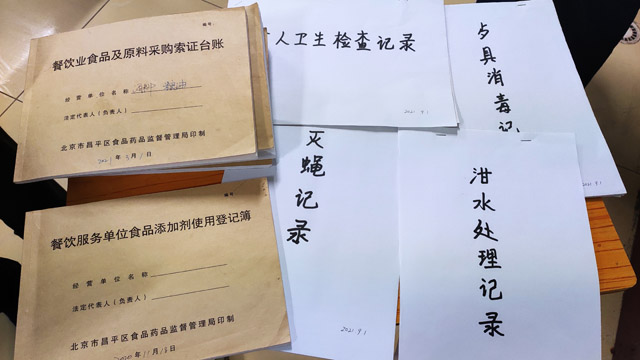 编号:
餐饮业食品及原料采购索证台账
经营单位名称
法定代表人(负责人)
北京市昌平区食品药品监督管理局印制
2021年3月1日
编号:
餐饮服务单位食品添加剂使用登记簿
经营单位名称
法定代表人(负责人)
北京市昌平区食品药品监督管理局印制
2020年11月18日
人卫生检查记录
2021.9.1
具消毒记
2021.9.1
灭蝇记录
2021.9.1
泔水处理记录
2021.9.1